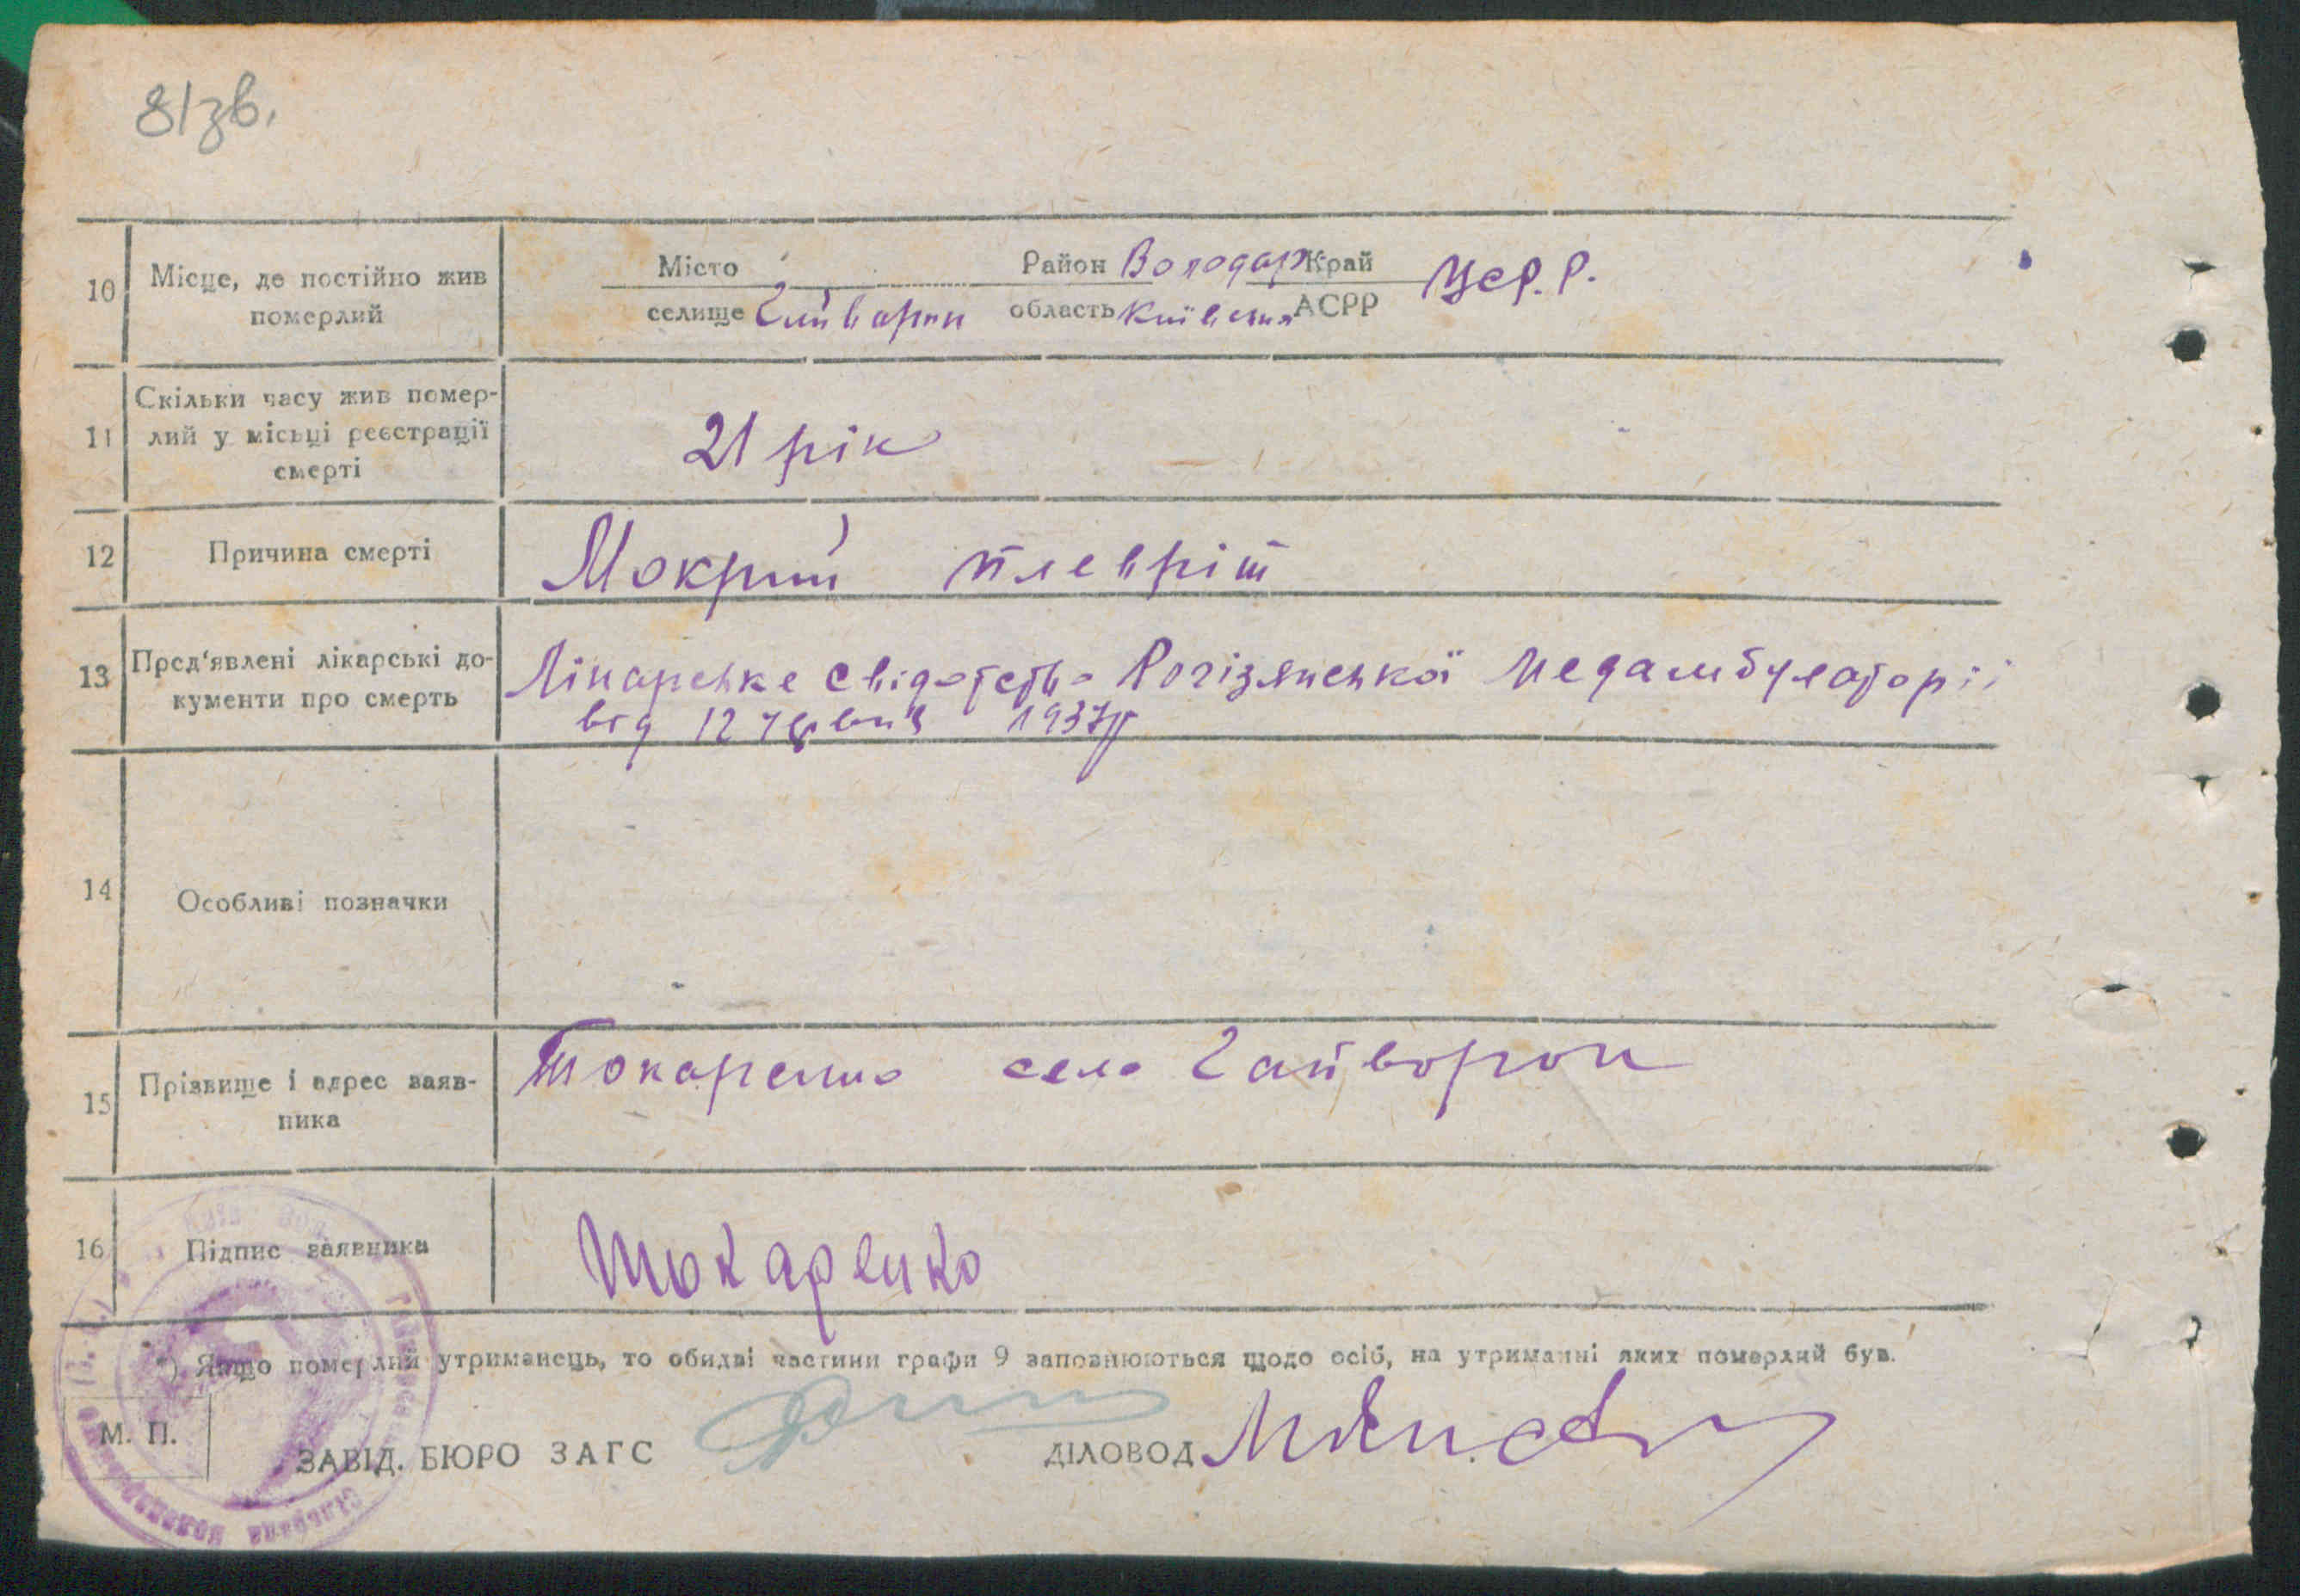 81зв.
10 Місце, де постійно жив померлий
Місто Район Володар Край УСР.Р.
селище Гайворон область Київська АСРР
11 Скільки часу жив помер-
лий у місьці реєстрації
смерті
21 рік
12 Причина смерті
Мокрий плевріт
13 Пред'явлені лікарські до-
кументи про смерть
Лікарське свідотство Рогізнянської медамбулаторії
від 12 червня 1937р
14 Особливі позначки
15 Прізвище і адрес заяв-
ника
Токаренко село Гайворон
16 Підпис заявника
Токаренко
*) Якщо померлий утриманець, то обидві частини графи 9 заповнюються щодо осіб, на утриманні яких померлий був.
М. П.
ЗАВІД. БЮРО ЗАГС
ДІЛОВОД